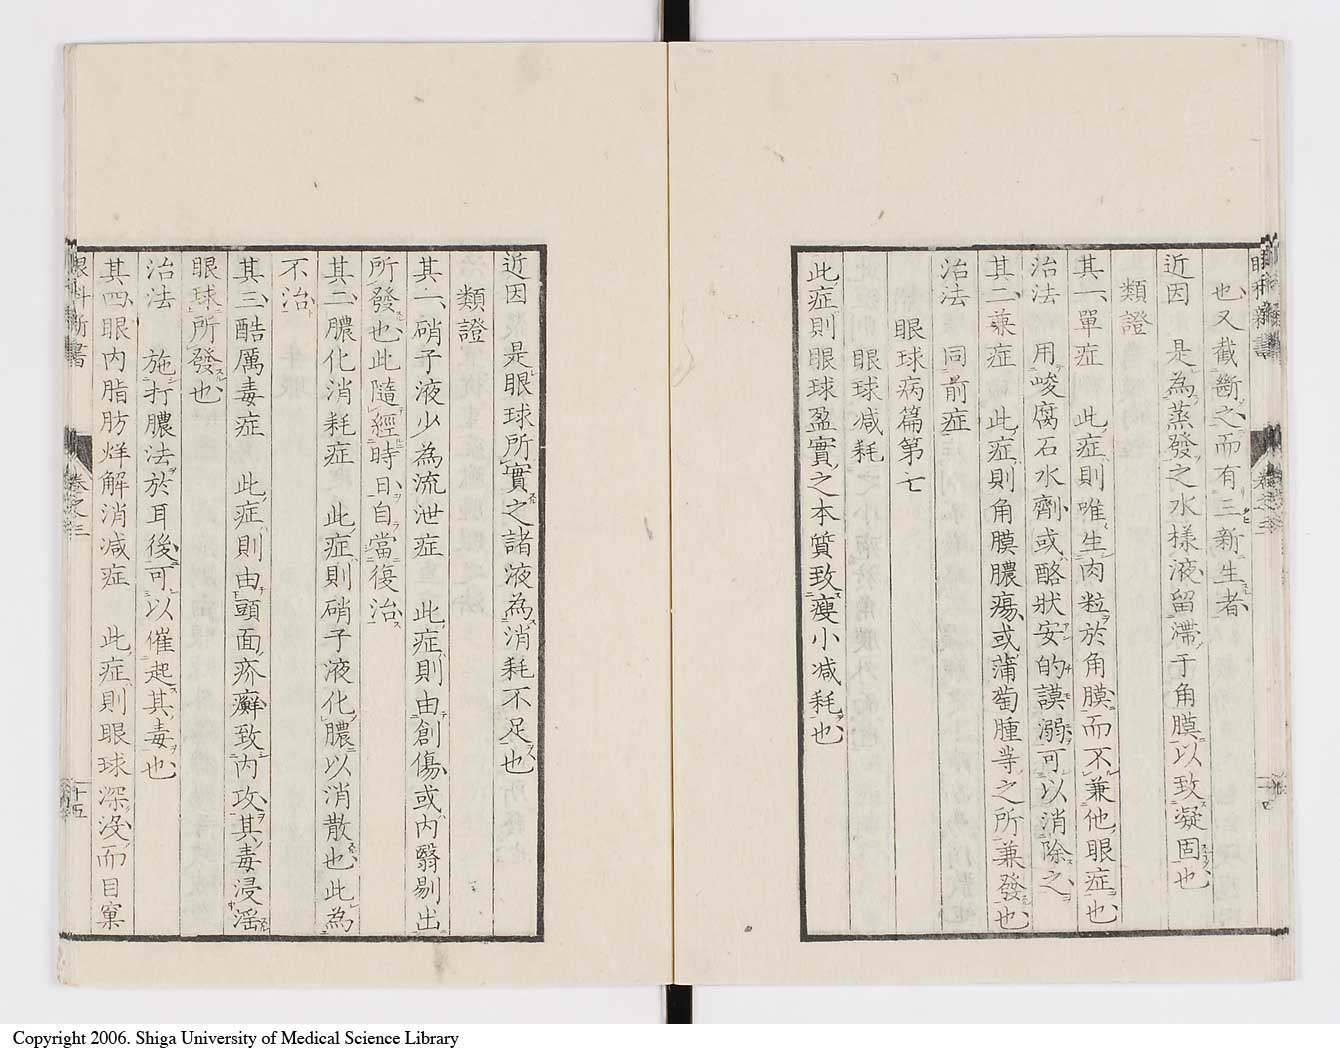 也又截斷之而有三新生者
近因 是為蒸發之水様液留滯于角膜以致凝固也
類證
其一單症 此症則唯生肉粒於角膜而不兼他眼症也
治法 用峻腐石水劑或酪狀安的謨溺可以消除之
其二兼症 此症則角膜膿瘍或蒲萄腫等之所兼發也
治法 同前症
眼球病篇第七
眼球减耗
此症則眼球盈實之本質致瘦小减耗也
近因 是眼球所實之諸液為消耗不足也
類證
其一硝子液少為流泄症 此症則由創傷或内翳剔出
所發也此隨經時日自當復治
其二膿化消耗症 此症則硝子液化膿以消散也此為
不治
其三酷厲毒症 此症則由頭面疥癬致内攻其毒浸淫
眼球所發也
治法 施打膿法於耳後可以催起其毒也
其四眼内脂肪烊解消减症 此症則眼球深没而目窠
眼科新書
卷之三
十四
眼科新書
卷之三
十五
Copyright 2006. Shiga University of Medical Science Library